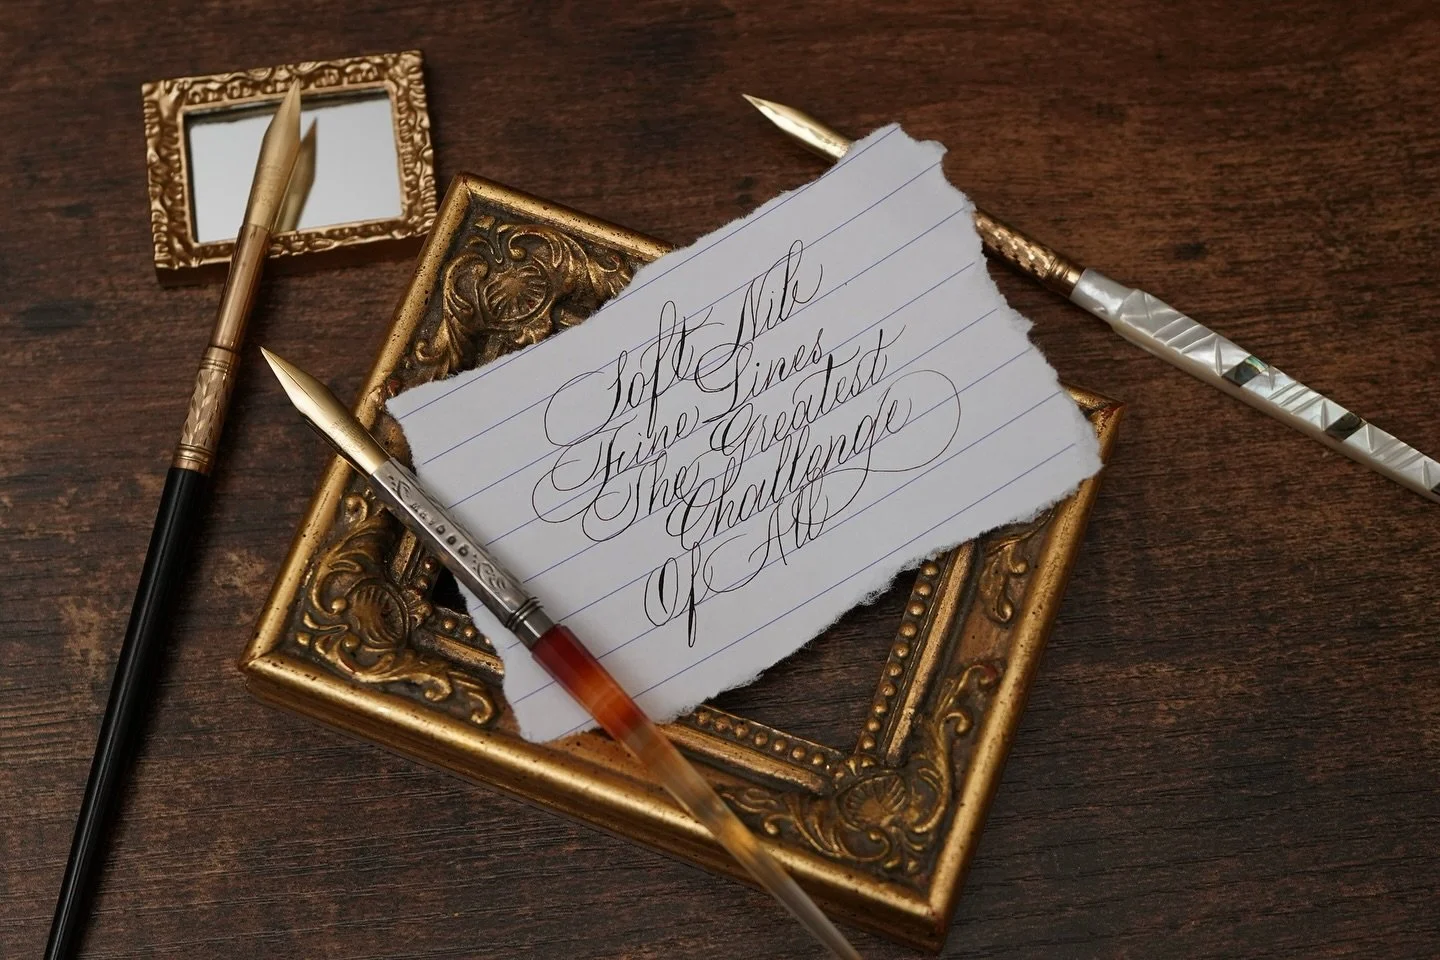 Soft Nib
Fine Lines
The Greatest
Challenge
Of All